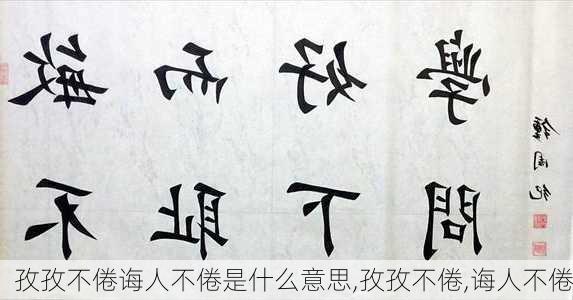 敏而好學
不耻下問
孜孜不倦诲人不倦是什么意思,孜孜不倦,诲人不倦